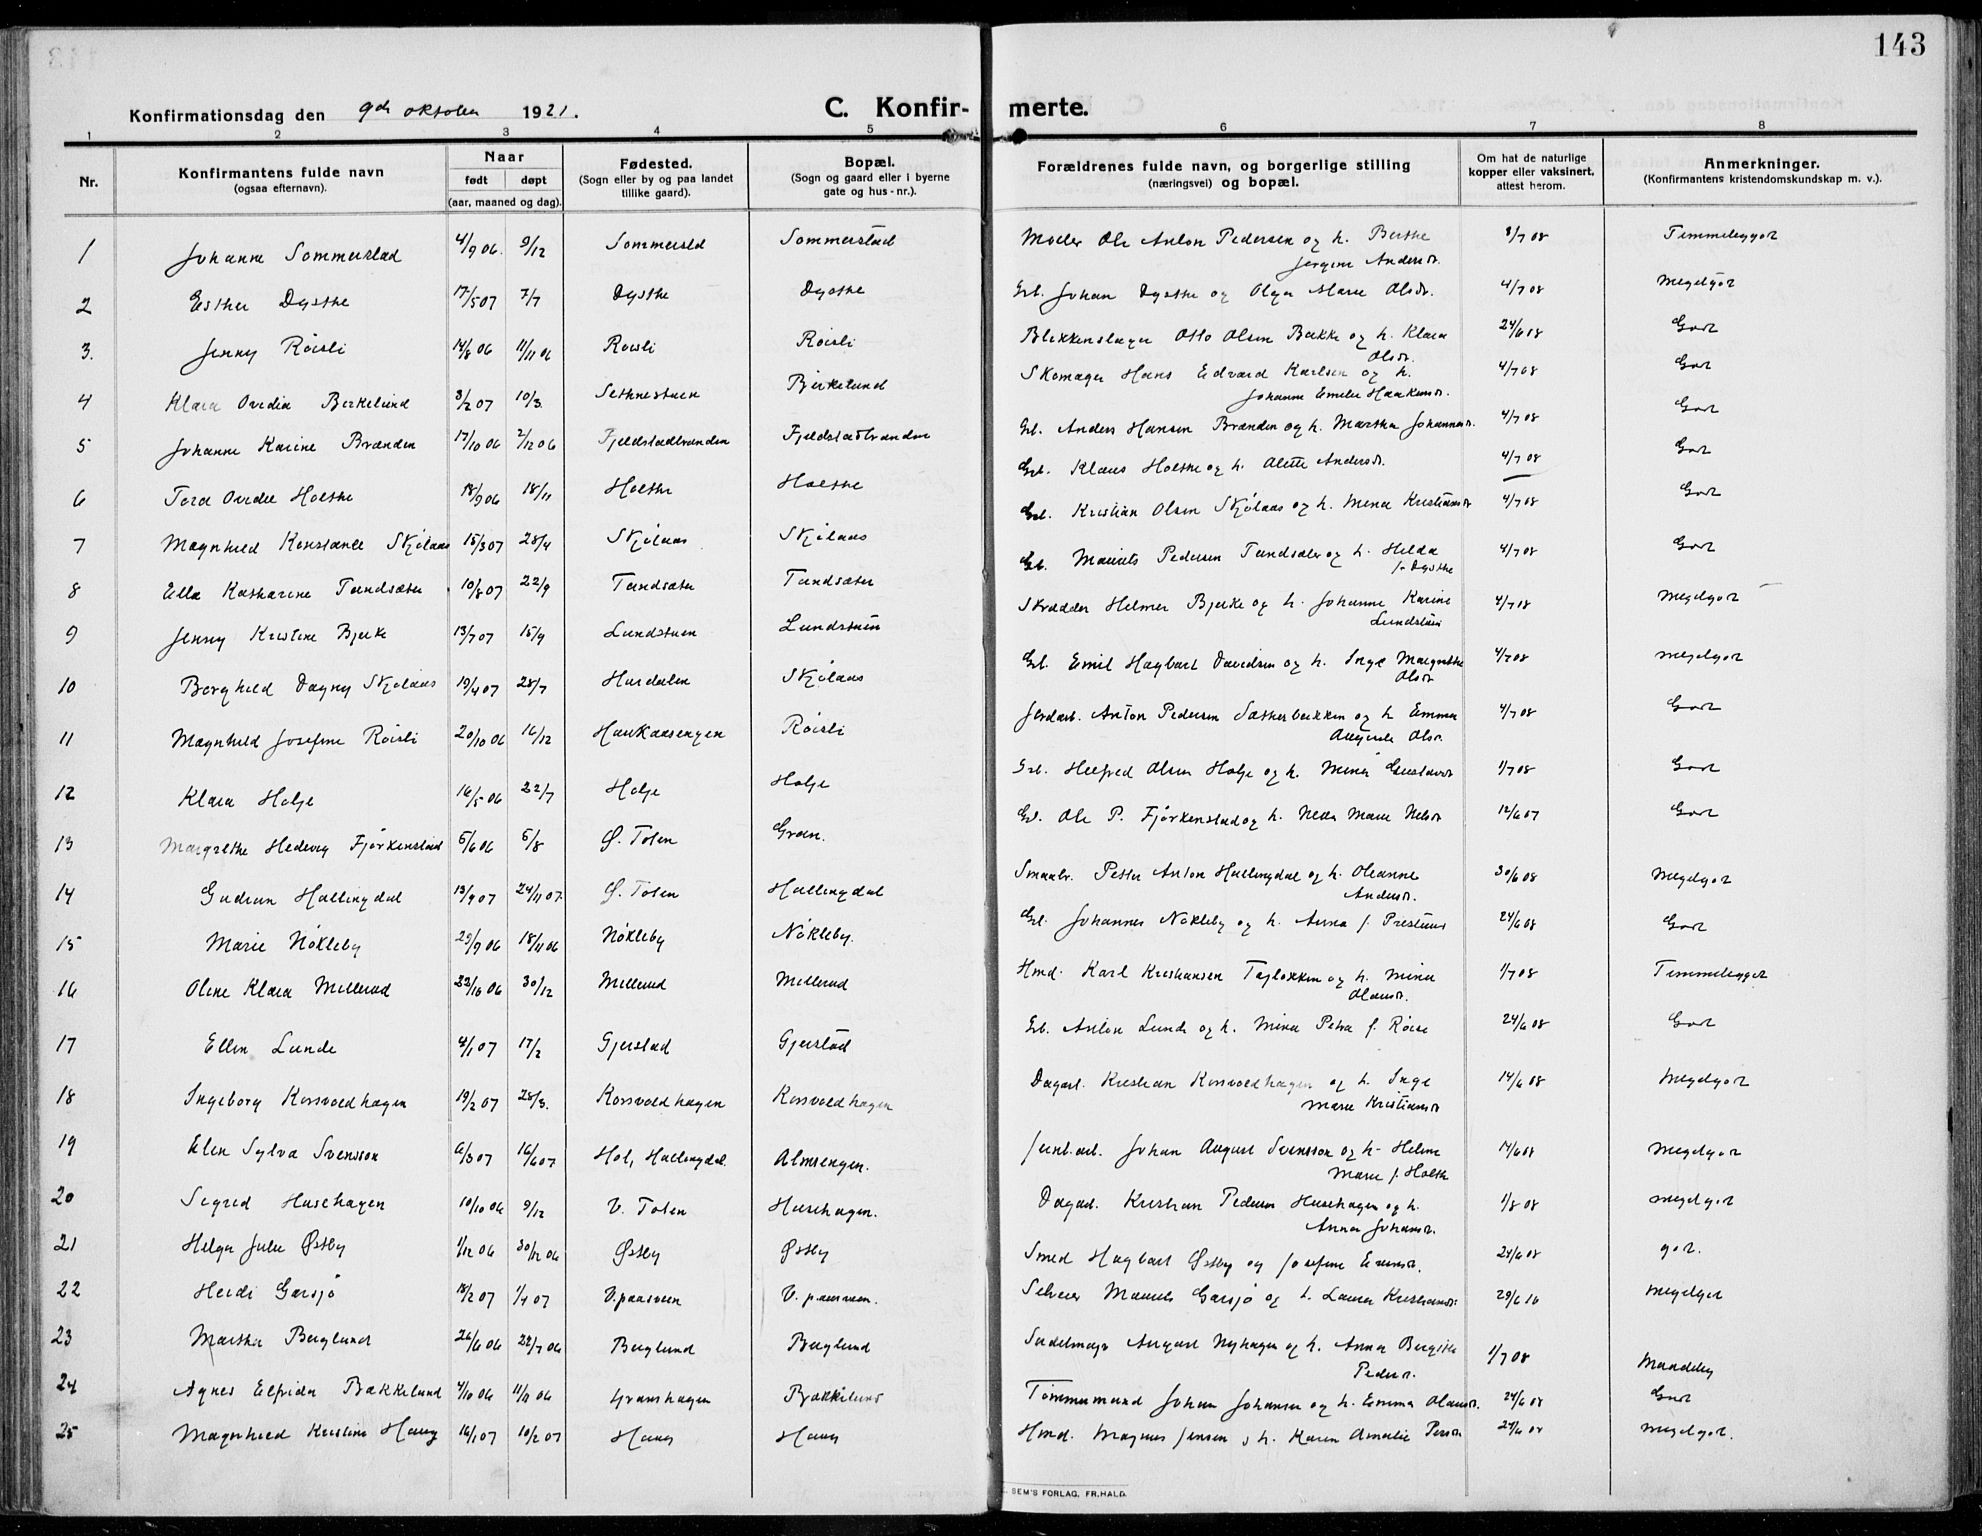 143
Konfirmationsdag den 9de oktober 1921.
C. Konfir- merte.
1 2 3 4 5 6 7 8
Nr.
Konfirmantens fulde navn
(ogsaa efternavn).
Naar
født døpt
(aar, maaned og dag).
Fødested.
(Sogn eller by og paa landet
tillike gaard).
Bopæl.
(Sogn og gaard eller i byerne
gate og hus-nr.).
Forældrenes fulde navn, og borgerlige stilling
(næringsvei) og bopæl.
Om hat de naturlige
kopper eller vaksinert,
attest herom.
Anmerkninger.
(Konfirmantens kristendomskundskap m. v.).
1 Johanne Sommerstad 4/9 06. 9/12 Sommerstd Sommerstad Møller Ole Anton Pedersen og h. Berthe 8/7 08
Jørgine Andersd.
2 Esther Dysthe 17/5 07 7/7 Dysthe Dysthe Grb. Johan Dysthe og Olga Marie Olsd. 4/7 08 Megetgot
3. Jenny Röisli 14/8 06 11/11 06 Röisli Röisli Blikkenslager Otto Olsen Bakke og h. Klara 24/6 08 Godt
Olsd.
4 Klara Ovedia Birkelund 3/2 07 10/3. Sethnestuen Bjerkelund Skomager Hans Edvard Karlsen og h. 4/7 08 Godt
Johanne Emelie Haakensd.
5 Johanne Karine Brænden 17/10 06 2/12 06 Fjeldstadbrænden Fjeldstadbrænden Gb. Anders Hansen Brænden og h. Martha Johannesd. 4/7 08 Godt
6 Tora Ovedie Holthe 18/9 06 18/11 Holthe Holthe Grb. Klaus Holthe og h. Olette Andersd. 4/7 08 Godt
7 Magnhild Konstance Skjølaas 15/3 07 28/4 Skjølaas Skjølaas Grb. Kristian Olsen Skjølaas og h. Mina Kristiansd 4/7 08 Godt
8 Ella Katharine Tandsæter 10/8 07 22/9 Tandsæter Tandsæter Gb. Maurits Pedersen Tandsæter og h. Hilda 4/7 08 Godt
f. Dysthe
9 Jenny Kristine Bjerke 13/7 07 15/9 Lundstuen Lundstuen Skrædder Helmer Bjerke og h. Johanne Karine 4/7 08 Megetgot
Lundstuen
10 Borghild Dagny Skjølaas 19/4 07 28/7 Hurdalen Skjølaas Gb. Emil Hagbart Davidsen og h. Inga Margrethe 4/7 08 Megetgot
Olsd
11 Magnhild Josefine Röisli 20/10 06 16/12 Haukaasengen Röisli Jordarb. Anton Pedersen Sætherbakken og h. Emma 4/7 08 Godt
Olsd.
12 Klara Holje 16/5 06 22/7 Holje Holje Grb. Helfred Olsen Holje og h. Mina Gustavsd 1/7 08 Godt
13 Margrethe Hedevig Fjørkenstad 5/6 06 5/8 Ø. Toten Gran. Gb. Ole P. Fjørkenstad og h. Netta Marie Nelsd 12/6 07 Godt
14 Gudrun Hallingdal 13/9 07 24/11 07. Ø. Toten Hallingdal Smaabr. Petter Anton Hallingdal og h. Oleanne 30/6 08 Megetgot
Andersd.
15 Marie Nökleby 29/9 06 18/11 06 Nökleby Nökleby. Grb. Johannes Nökleby og h. Anna f. Prestrud 24/6 08 Godt
16 Oline Klara Millerud 22/10 06 30/12 Millerud Millerud Hmd. Karl Kristiansen Tajlokken og h. Mina 1/7 08
Olausd.
17 Ellen Lunde 4/1 07 17/2 Gjerstad Gjerstad Grb. Anton Lunde og h. Mina Petra f. Röise 24/6 08 Godt
18 Ingeborg Korsvoldhagen 19/2 07 28/3. Korsvoldhagen Korsvoldhagen Dagarb. Kristian Korsvoldhagen og h. Inga 14/6 08 Megetgot
Marie Kristiansd
19 Elen Sylva Svensson 6/3 07 16/6 07. Hol, Hallingdal. Almsengen. Jernb.arb. Johan August Svensson og h. Helene 14/6 08 Megetgot
Marie f. Holth
20 Sigred Husehagen 10/10 06 9/12 V. Toten Husehagen. Dagarb. Kristian Pedersen Husehagen og h. 1/8 08 Megetgot
Anna Johansd.
21 Helga Julie Østby 1/12 06 30/12 06 Østby Østby Smed Hagbart Østby og Josefine Evensd. 24/6 08 got.
22 Heidi Garsjø 18/2 07 1/4 07 V.paasveen V. paasveen. Selveier Maurits Garsjø og h. Laura Kristiansd. 29/6 16 Megetgot
23 Martha Berglund 26/6 06 22/7 06 Berglund Berglund Sadelmagr August Nyhagen og h. Anna Bergitte 1/7 08
Pedersd.
24 Agnes Elfrida Bækkelund 4/10 06 11/11 06 Granshagen Bækkelund Tömmermand Johan Johansen og h. Emma Olausd. 24/6 08 Godt
25 Magnhild Kristine Haug 16/1 07 10/2 07 Haug Haug Hmd. Magnus Jensen og h. Karen Amalie Persd 24/6 08 Megetgot.
SEM'S FORLAG, FR.HALD.